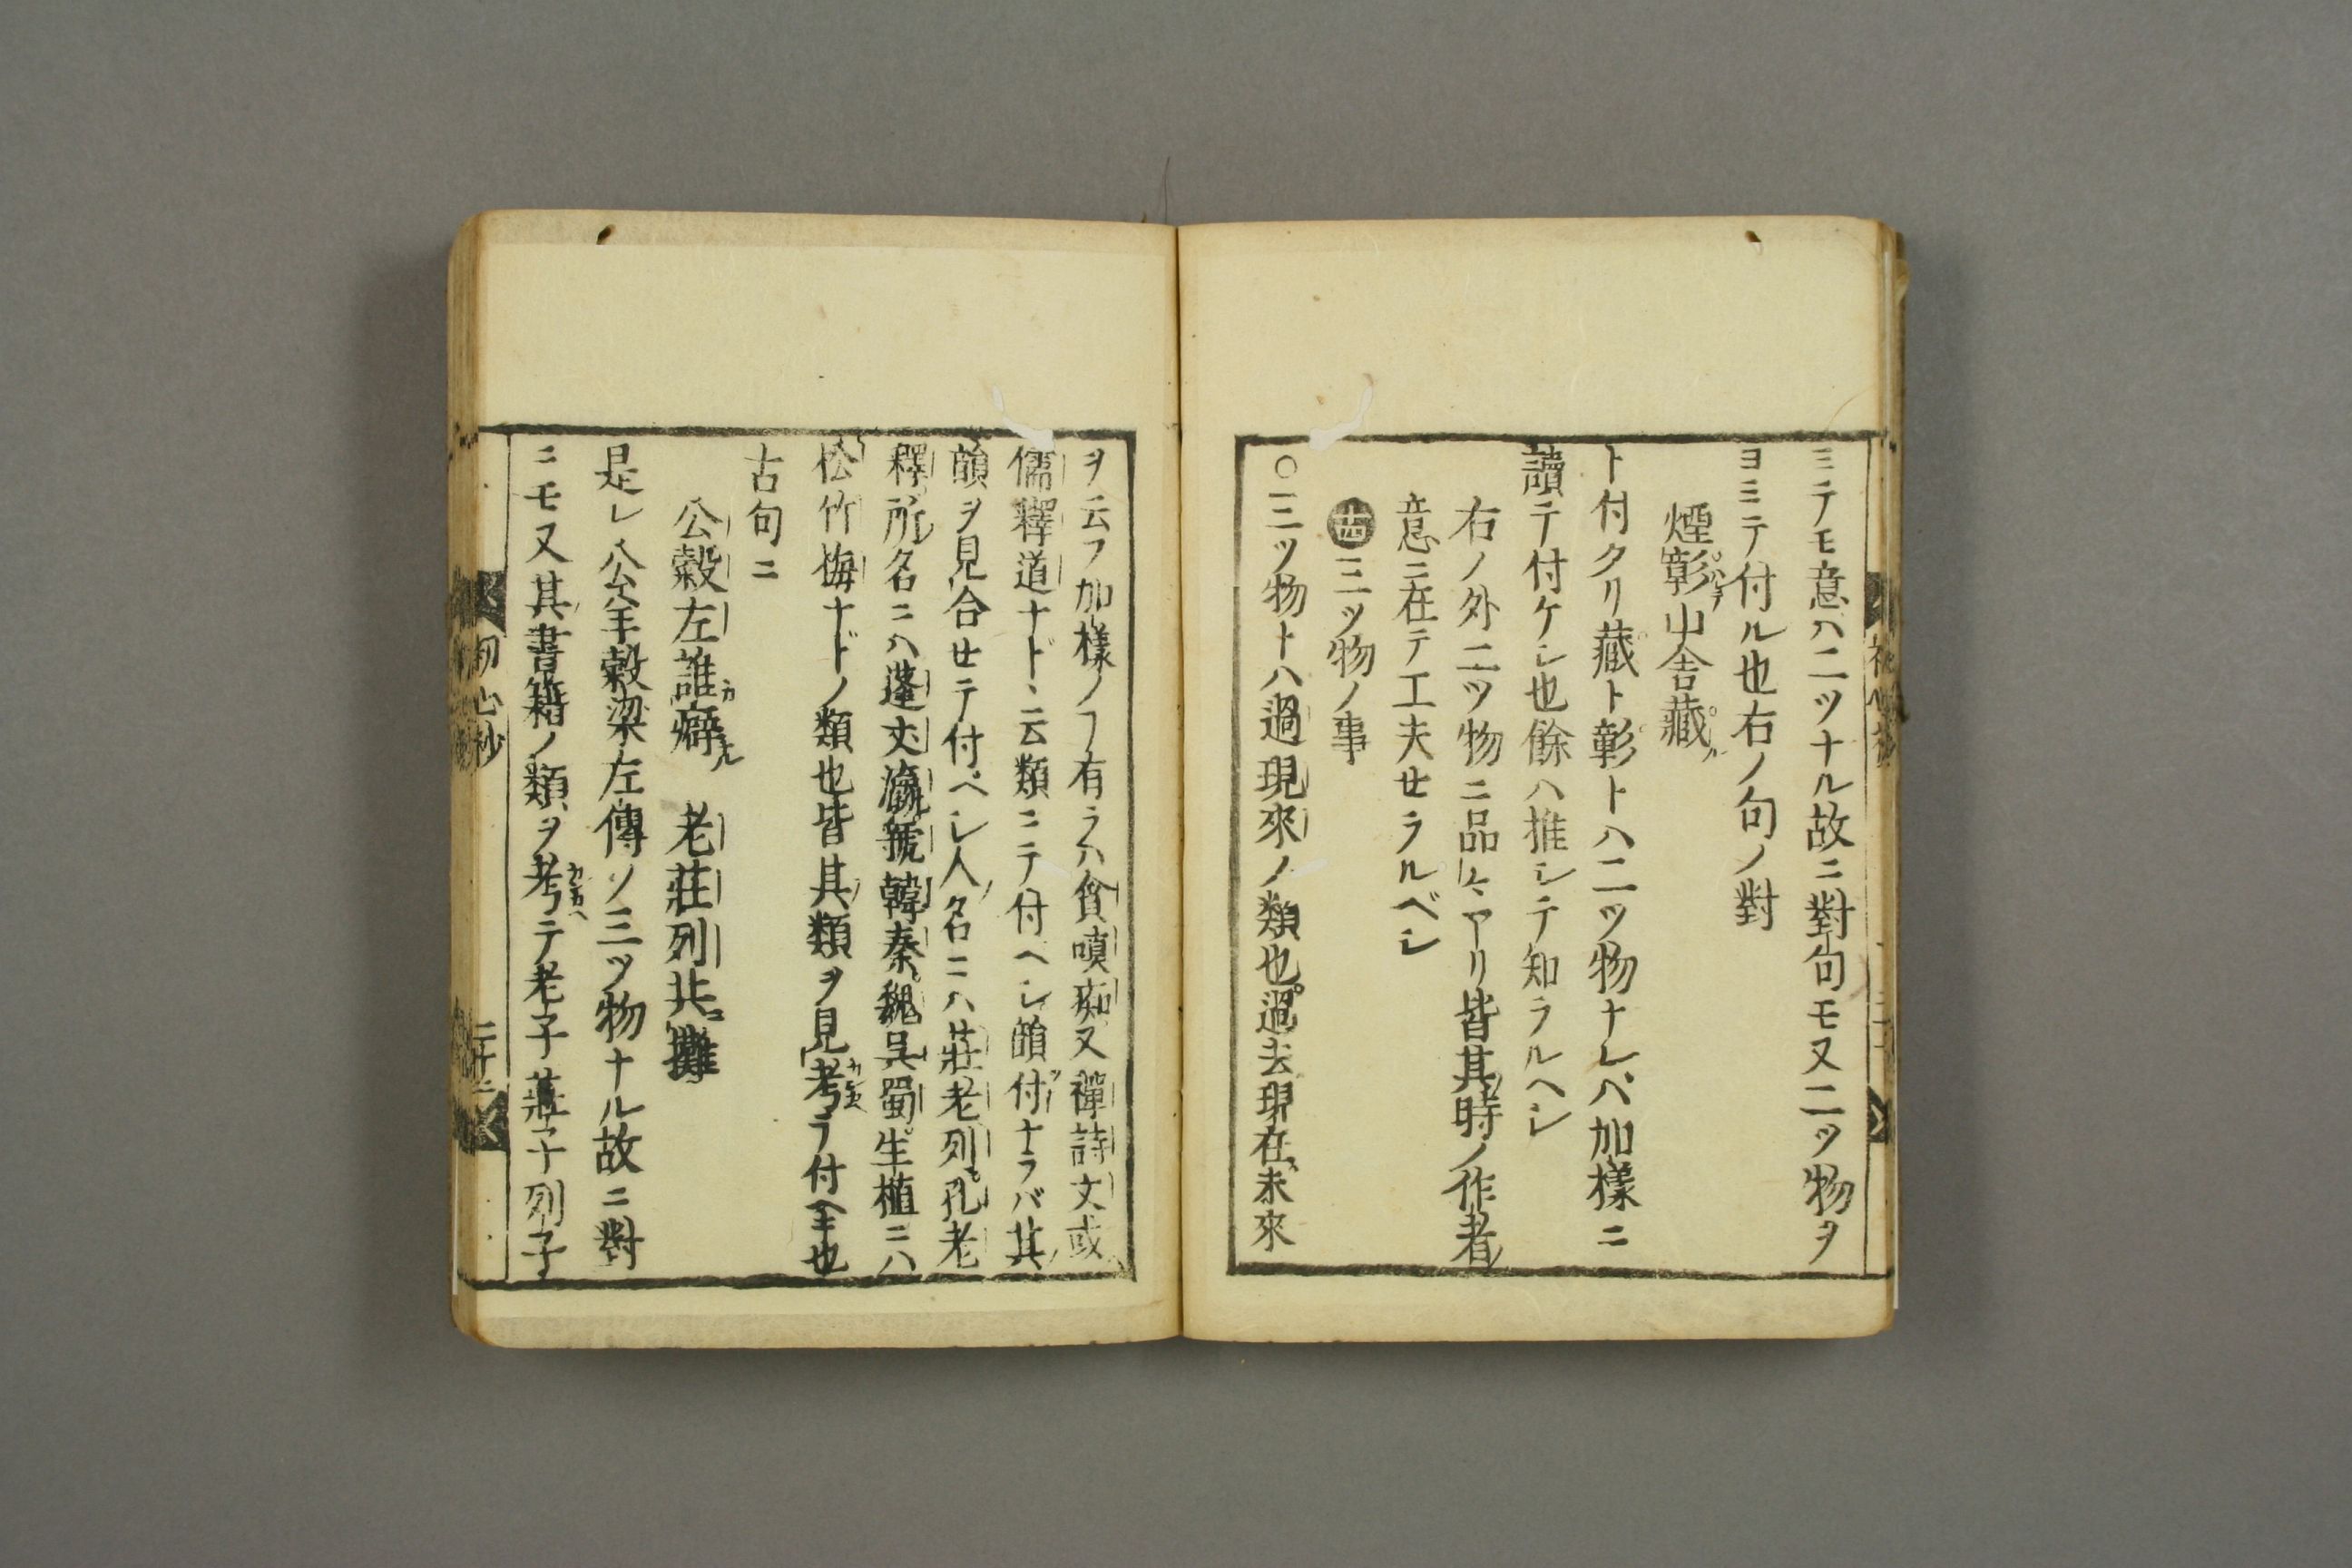 ミテモ意ハ二ツナル故ニ對句モ又二ツ物ヲ
ヨミテ付ル也右ノ句ノ對
煙彰山舎藏
ト付タリ藏ト彰トハ二ツ物ナレバ加様ニ
讀テ付ケシ也餘ハ推シテ知ラルヘシ
右ノ外二ツ物ニ品々アリ皆其時ノ作者
意ニ在テ工夫セラルベシ
三ツ物ノ事
○三ツ物トハ過現來ノ類也過去現在未來
ヲ云フ加様ノフ有ラハ貪嗔痴又禪詩文或
儒釋道ナドヽ云類ニテ付ヘシ韻付ナラバ其
韻ヲ見合セテ付ベシ人名ニハ莊老列孔老
釋所名ニハ蓬丈瀛號韓秦魏呉蜀生植ニハ
松竹梅ナドノ類也皆其類ヲ見考ラ付ヘキ也
古句ニ
公穀左誰癖 老莊列共攤
是レ公羊穀梁左傳ノ三ツ物ナル故ニ對
ニモ又其書籍ノ類ヲ考テ老子莊子列子
初心抄
二十二